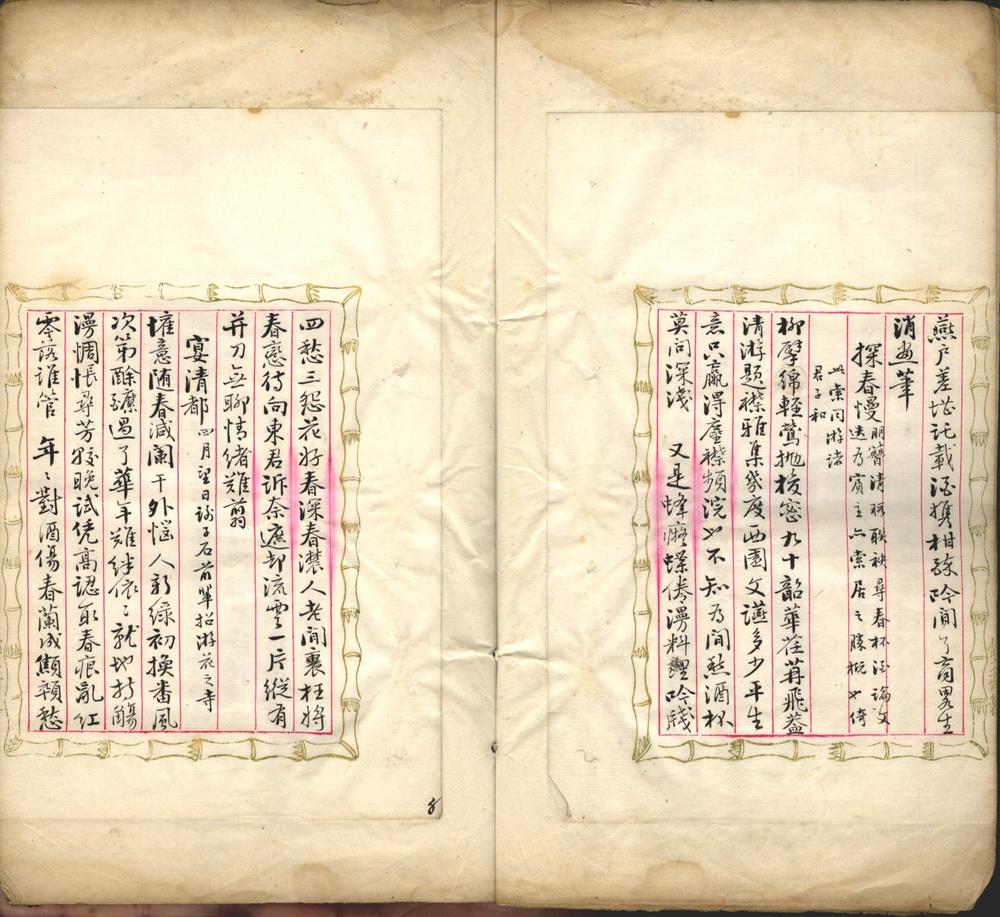 燕戶差堪託載酒携柑疎吟閒了商畧生
消畫筆
探春慢
朋簪清暇聯袂尋春杯酒論文
迭為賓主亦索居之勝概也倚
此索同游諸
君子和
柳擘綿輕鶯拋梭密九十韶華荏苒飛蓋
清游題襟雅集幾度西園文讌多少平生
意只贏得塵襟頻浣也不知為閒愁酒杯
莫問深淺 又是蜂癡蝶倦漫料理吟牋
四愁三怨花好春深春濃人老閒裏枉將
春戀待向東君訴奈遮却流雲一片縱有
并刀無聊情緒難翦
宴清都 四月望日 子石前輩招游花之寺
慵意随春減闌干外惱人新綠初換番風
次第酴醾過了華年難絆依〻就地持觴
漫惆悵尋芳較晚試凭高認取春痕亂紅
零落誰管 年〻對酒傷春蘭成顦顇愁
8